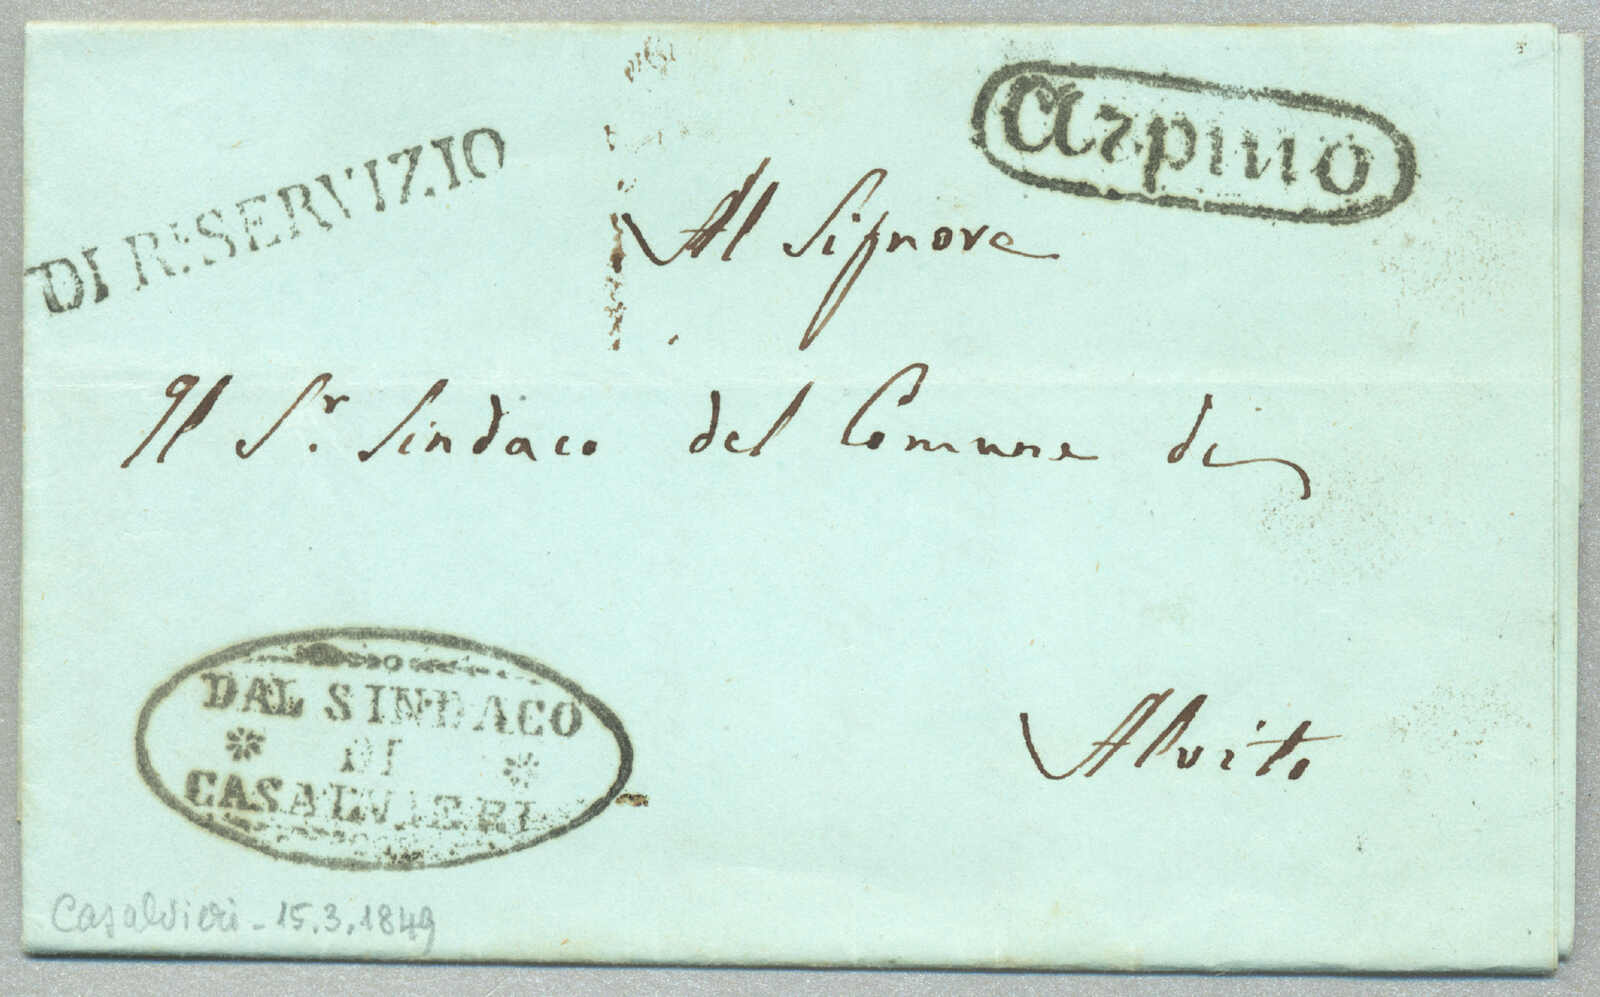 DI R.l SERVIZIO
Arpino
Al Signore
Il Sr. Sindaco del Comune di
Alvito
DAL SINDACO
DI
CASALVIERI
Casalvieri - 15.3.1849